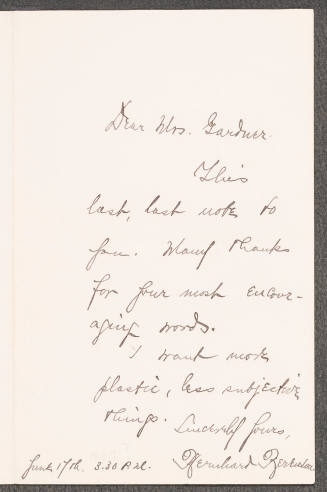 Dear Mrs. Gardner.
This
last, last note to
you. Many thanks
for your most encour-
aging words.
I want more
plastic, less subjective
things.
Sincerely yours,
Bernhard Berenson
June 17th. 3.30 A.M.